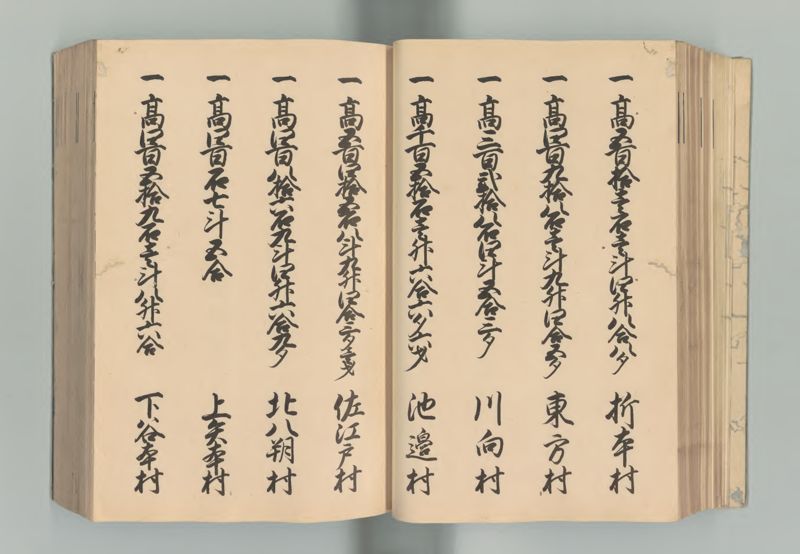 一 高五百拾壱石壱斗四升八合八夕 折本村
一 高四百九拾八石壱斗九升四合五夕 東方村
一 高三百弐拾八石四斗五合三夕 川向村
一 高千百五拾石壱升六合六夕六才 池邊村
一 高五百四拾五石八斗九升四合三夕壱才 佐江戸村
一 高四百八拾六石九斗四升六合九夕 北八朔村
一 高四百石七斗五合 上谷本村
一 高四百五拾九石壱斗八升六合 下谷本村